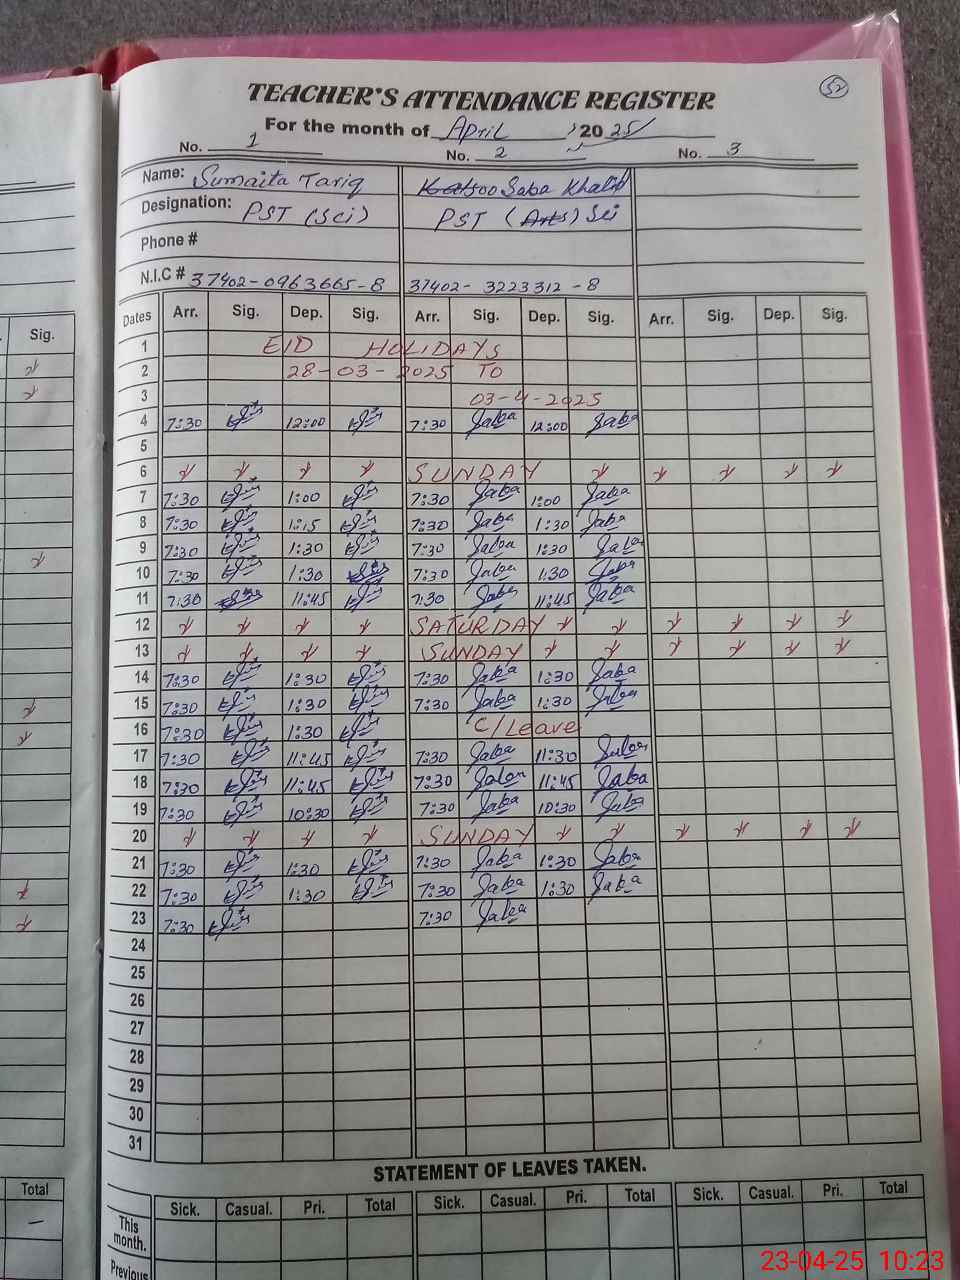 52
TEACHER'S ATTENDANCE REGISTER
For the month of April 2025
No. 1 No. 2 No. 3
Name: Sumaita Tariq Saba Khalid
Designation: PST (Sci) PST (Arts) Sci
Phone #
N.I.C # 37402-0963665-8 37402-3223312-8
Sig. Dates Arr. Sig. Dep. Sig. Arr. Sig. Dep. Sig. Arr. Sig. Dep. Sig.
1 EID HOLIDAYS
2 28-03-2025 TO
3 03-4-2025
4 7:30 12:00 7:30 Saba 12:00 Saba
5
6 SUNDAY
7 7:30 1:00 7:30 Saba 1:00 Saba
8 7:30 1:15 7:30 Saba 1:30 Saba
9 7:30 1:30 7:30 Saba 1:30 Saba
10 7:30 1:30 7:30 Saba 1:30 Saba
11 7:30 11:45 7:30 Saba 11:45 Saba
12 SATURDAY
13 SUNDAY
14 7:30 1:30 7:30 Saba 1:30 Saba
15 7:30 1:30 7:30 Saba 1:30 Saba
16 7:30 1:30 C/Leave
17 7:30 11:45 7:30 Saba 11:30 Saba
18 7:30 11:45 7:30 Saba 11:45 Saba
19 7:30 10:30 7:30 Saba 10:30 Saba
20 SUNDAY
21 7:30 1:30 7:30 Saba 1:30 Saba
22 7:30 1:30 7:30 Saba 1:30 Saba
23 7:30 7:30 Saba
24
25
26
27
28
29
30
31
STATEMENT OF LEAVES TAKEN.
Total Sick. Casual. Pri. Total Sick. Casual. Pri. Total Sick. Casual. Pri. Total
This
month.
Previous
23-04-25 10:23